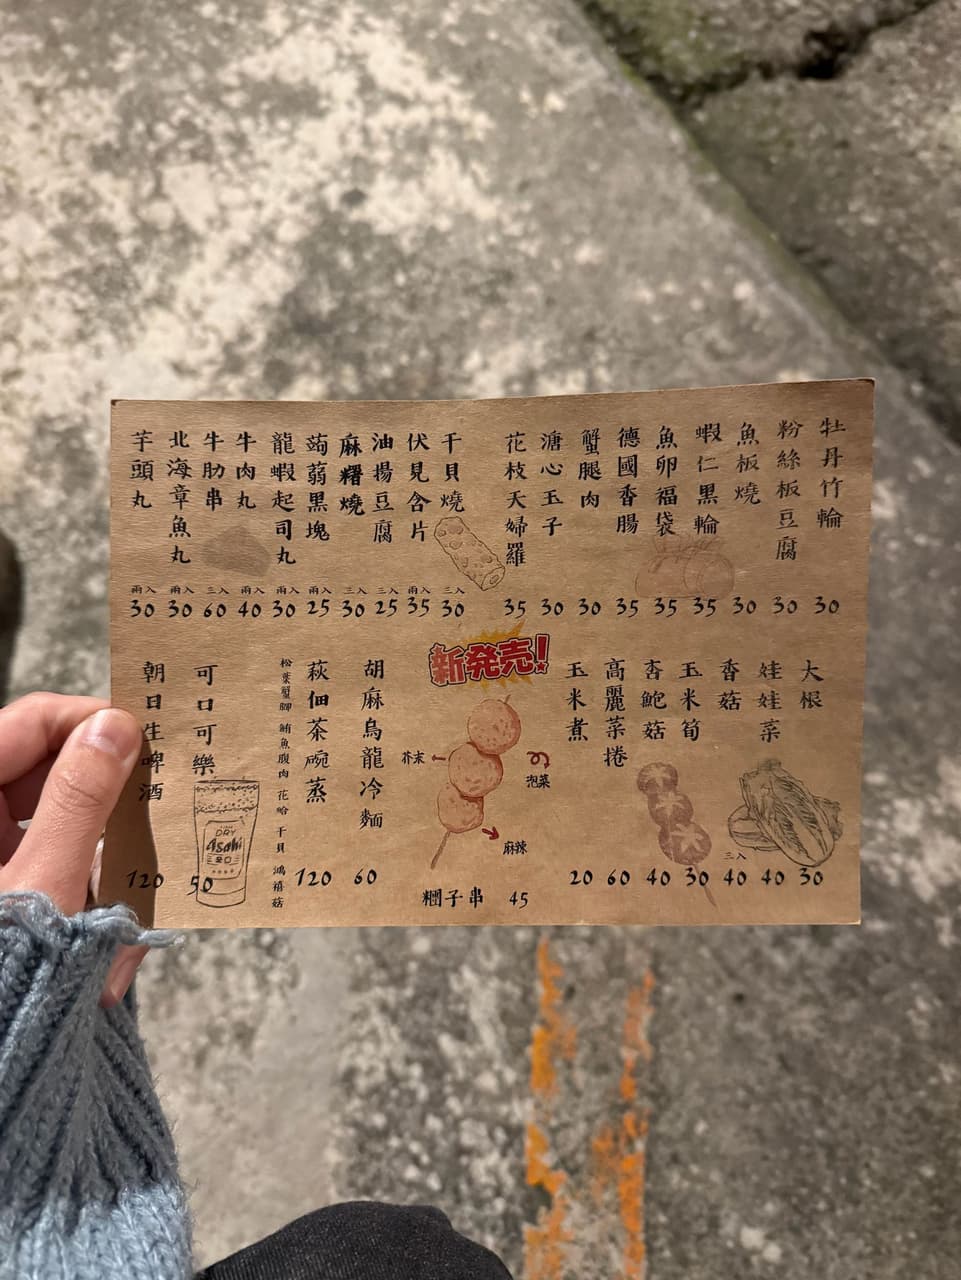 牡丹竹輪 30
粉絲板豆腐 30
魚板燒 30
蝦仁黑輪 35
魚卵福袋 35
德國香腸 35
蟹腿肉 30
溏心玉子 30
花枝天婦羅 35
干貝燒 三入 30
伏見含片 兩入 35
油揚豆腐 三入 25
麻糬燒 三入 30
蒟蒻黑塊 兩入 25
龍蝦起司丸 兩入 30
牛肉丸 兩入 40
牛肋串 三入 60
北海章魚丸 兩入 30
芋頭丸 兩入 30
大根 30
娃娃菜 40
香菇 三入 40
玉米筍 30
杏鮑菇 40
高麗菜捲 60
玉米煮 20
新発売!
芥末
泡菜
麻辣
糰子串 45
胡麻烏龍冷麵 60
萩佃茶碗蒸 120
松葉蟹腳 鮪魚腹肉 花哈 干貝 鴻禧菇
可口可樂 50
朝日生啤酒 120
DRY
Asahi